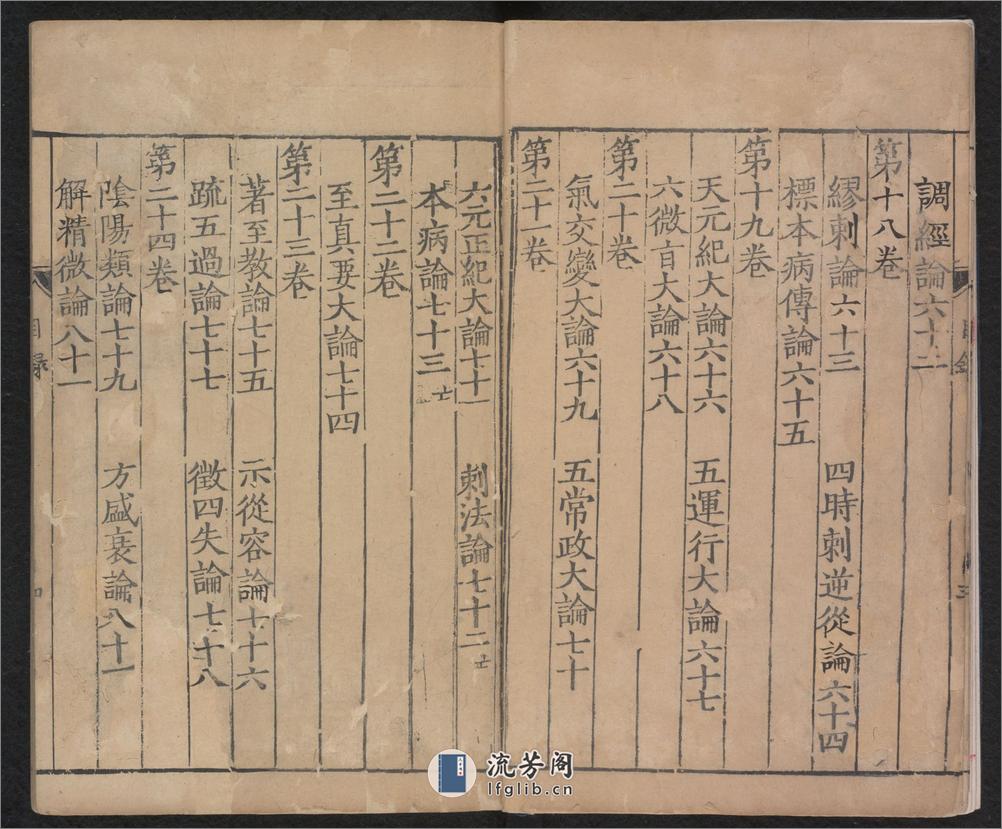 調經論六十二
第十八卷
繆刺論六十三 四時刺逆從論六十四
標本病傳論六十五
第十九卷
天元紀大論六十六 五運行大論六十七
六微旨大論六十八
第二十卷
氣交變大論六十九 五常政大論七十
第二十一卷
六元正紀大論七十一 刺法論七十二亡
本病論七十三亡
第二十二卷
至真要大論七十四
第二十三卷
著至教論七十五 示從容論七十六
疏五過論七十七 徵四失論七十八
第二十四卷
陰陽類論七十九 方盛衰論八十一
解精微論八十一
目錄
流芳阁
lfglib.cn